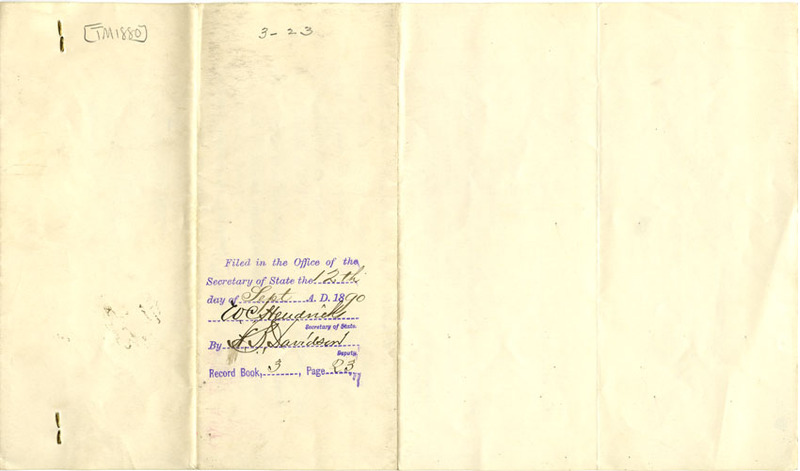 [TM1880]
3-23
Filed in the Office of the
Secretary of State the 12th
day of Sept A. D. 1890
E C Hendricks
Secretary of State.
By L. S. Davidson
Deputy.
Record Book, 3, Page 23